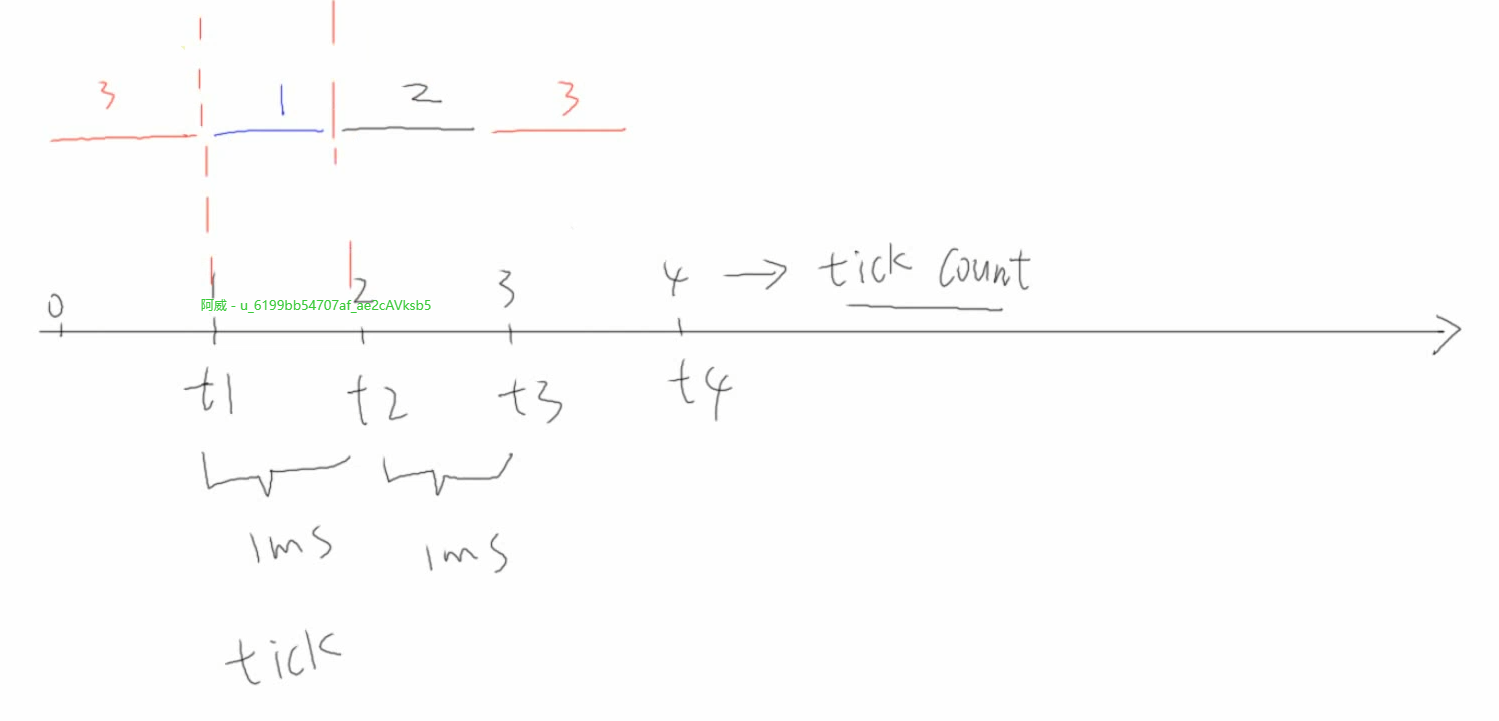 3 1 2 3
0 1 2 3 4 → tick count
阿威 - u_6199bb54707af_ae2cAVksb5
t1 t2 t3 t4
1ms 1ms
tick